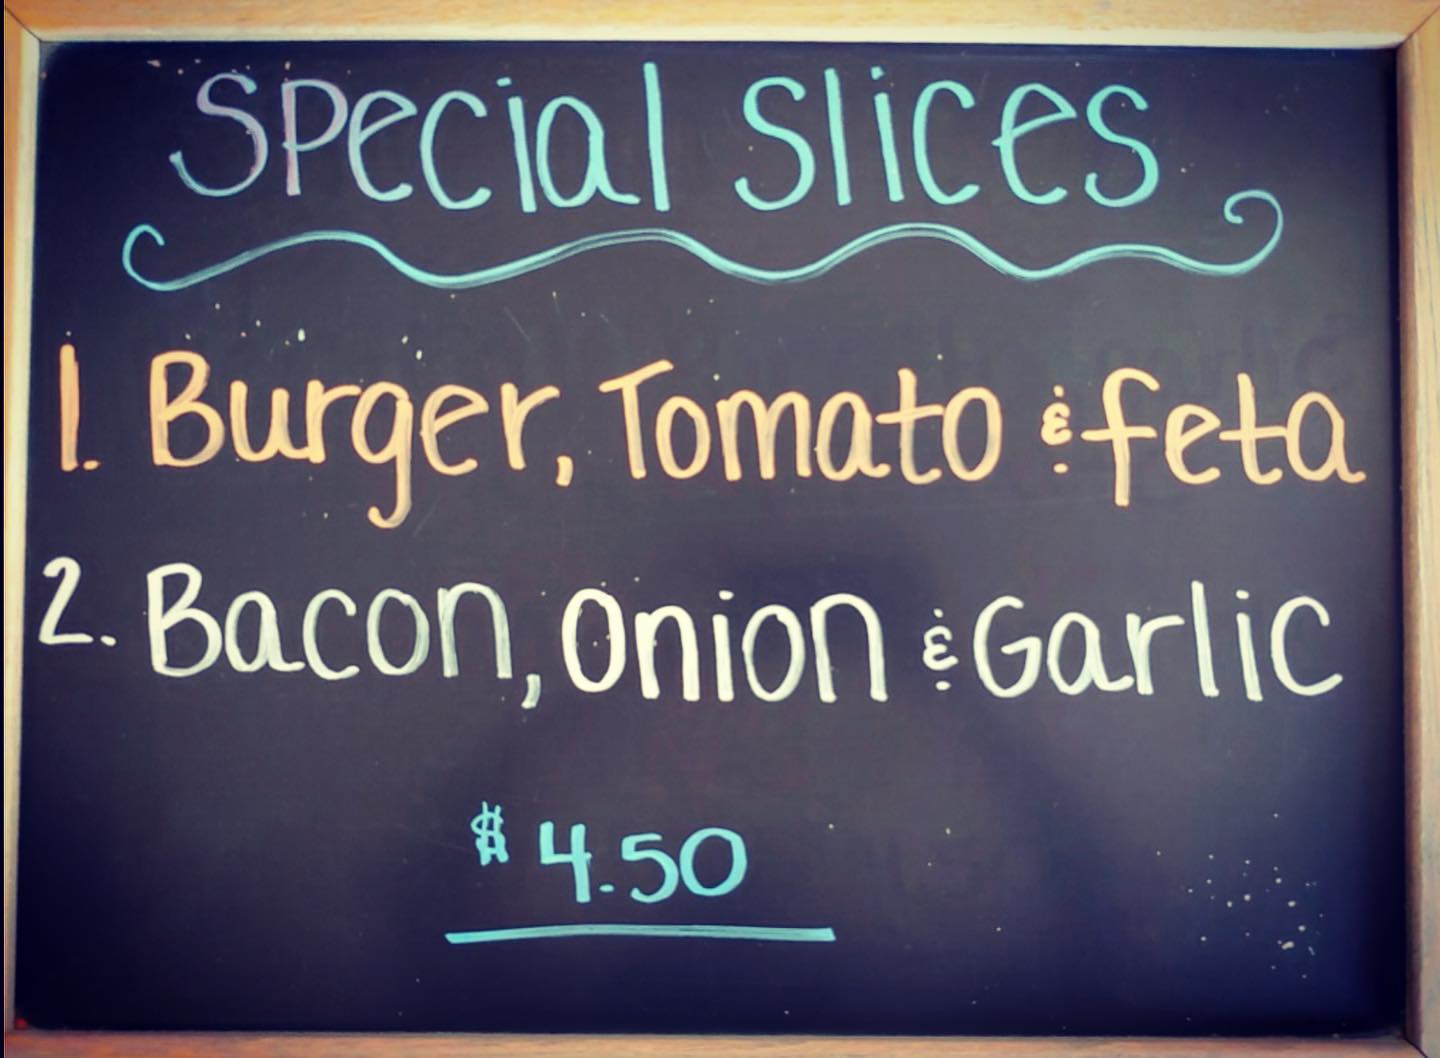 Special Slices
1. Burger, Tomato & feta
2. Bacon, Onion & Garlic
$4.50